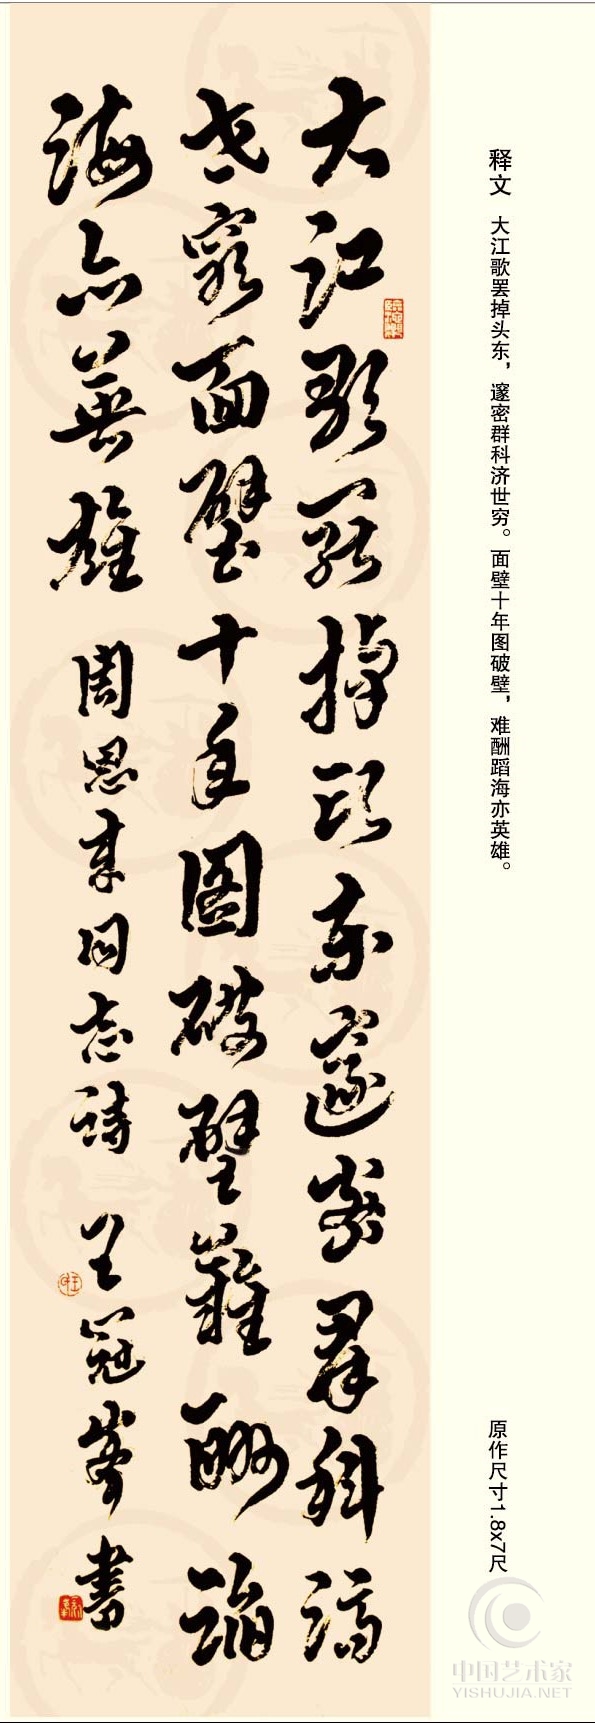 大江歌罢掉头东邃密群科济
世穷面壁十年图破壁难酬蹈
海亦英雄 周恩来同志诗 王冠峰书
释文 大江歌罢掉头东，邃密群科济世穷。面壁十年图破壁，难酬蹈海亦英雄。
原作尺寸1.8x7尺
中国艺术家
YISHUJIA.NET